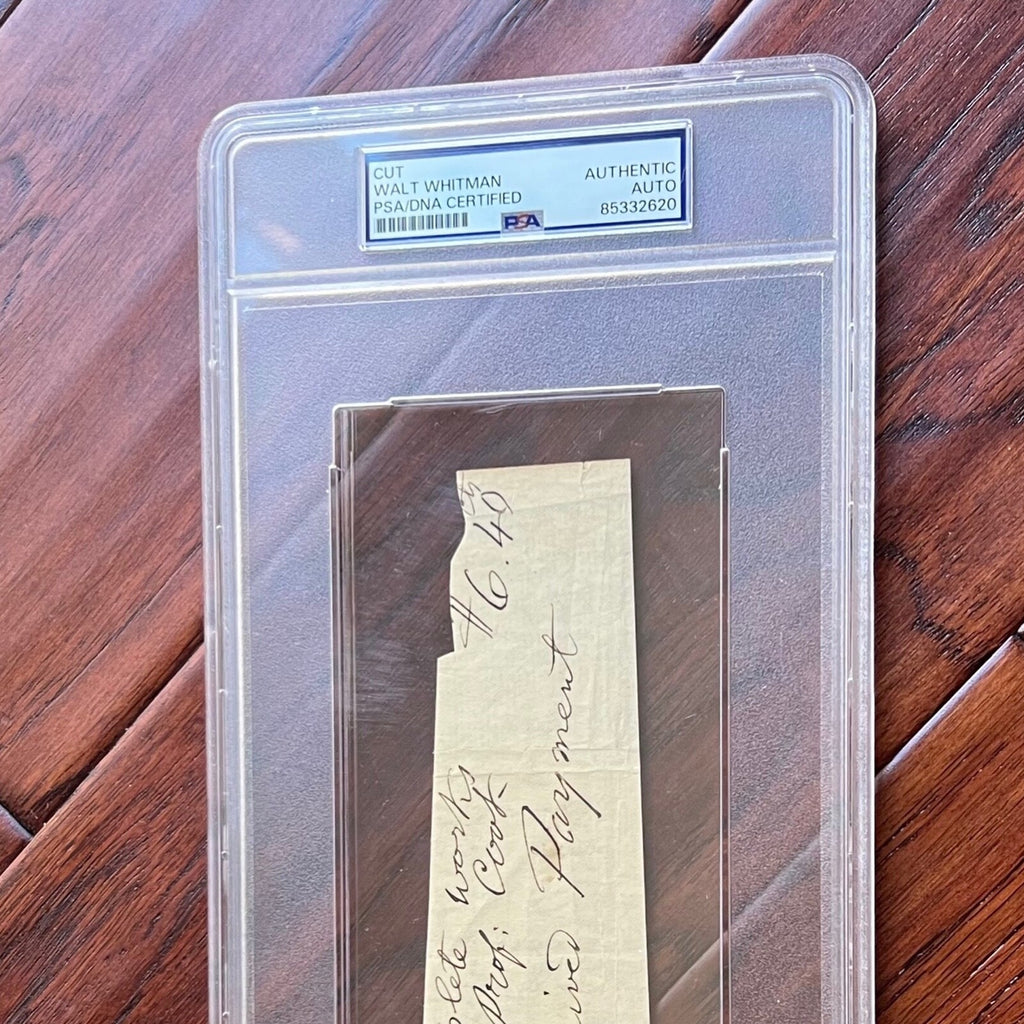 CUT
WALT WHITMAN
PSA/DNA CERTIFIED
AUTHENTIC
AUTO
85332620
PSA
$6.40
plete works
prof: Cook
ived Payment